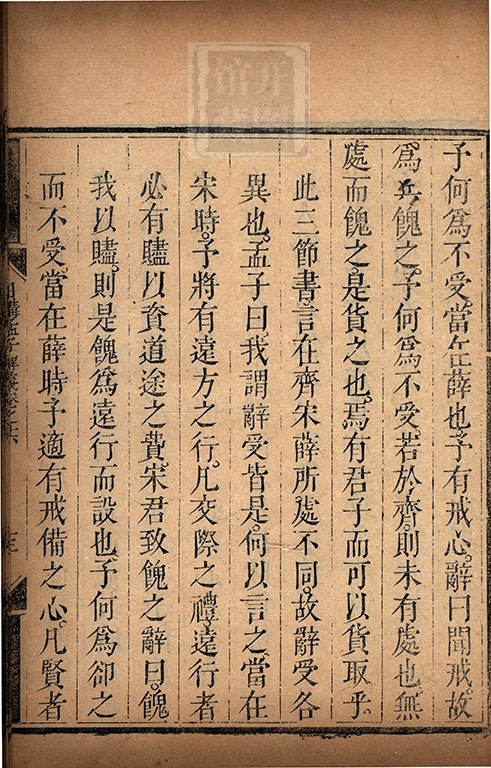 予何爲不受。當在薛也。予有戒心。辭曰聞戒。故
爲兵餽之。予何爲不受。若於齊。則未有處也。無
處而餽之。是貨之也。焉有君子而可以貨取乎。
此三節書。言在齊宋薛所處不同。故辭受各
異也。孟子曰。我謂辭受皆是。何以言之。當在
宋時。予將有遠方之行。凡交際之禮。遠行者
必有贐以資道途之費。宋君致餽之辭曰。餽
我以贐。則是餽爲遠行而設也。予何爲卻之
而不受。當在薛時。予適有戒備之心。凡賢者
日講孟子解義